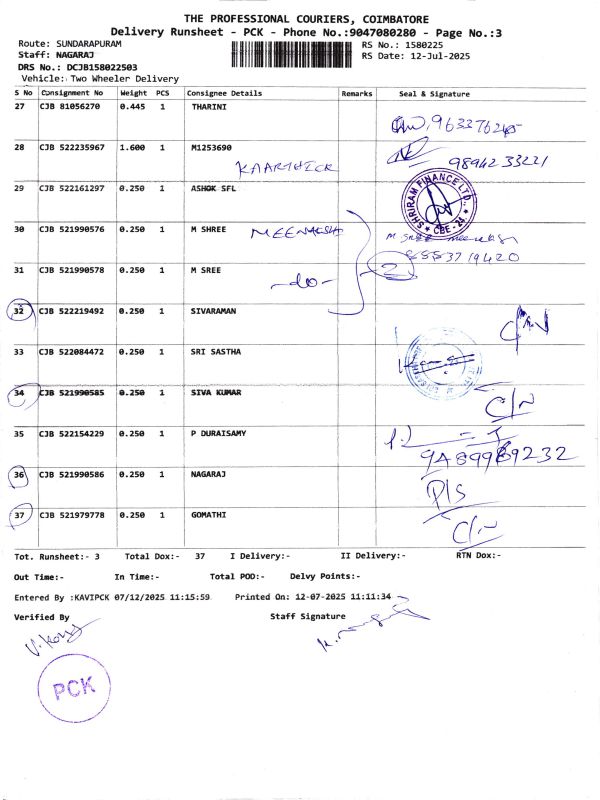 THE PROFESSIONAL COURIERS, COIMBATORE
Delivery Runsheet - PCK - Phone No.:9047080280 - Page No.:3
Route: SUNDARAPURAM RS No.: 1580225
Staff: NAGARAJ RS Date: 12-Jul-2025
DRS No.: DCJB158022503
Vehicle: Two Wheeler Delivery
S No Consignment No Weight PCS Consignee Details Remarks Seal & Signature
27 CJB 81056270 0.445 1 THARINI
28 CJB 522235967 1.600 1 M1253690
KAARTHICK 9894233221
29 CJB 522161297 0.250 1 ASHOK SFL
SHRIRAM FINANCE LTD., * CBE-24 *
30 CJB 521990576 0.250 1 M SHREE MEENAKSHI
M SREE
8553719420
31 CJB 521990578 0.250 1 M SREE
-do- 2
32 CJB 522219492 0.250 1 SIVARAMAN C/N
33 CJB 522084472 0.250 1 SRI SASTHA
34 CJB 521990585 0.250 1 SIVA KUMAR C/N
35 CJB 522154229 0.250 1 P DURAISAMY
36 CJB 521990586 0.250 1 NAGARAJ P/S
37 CJB 521979778 0.250 1 GOMATHI C/N
Tot. Runsheet:- 3 Total Dox:- 37 I Delivery:- II Delivery:- RTN Dox:-
Out Time:- In Time:- Total POD:- Delvy Points:-
Entered By :KAVIPCK 07/12/2025 11:15:59 Printed On: 12-07-2025 11:11:34
Verified By Staff Signature
PCK